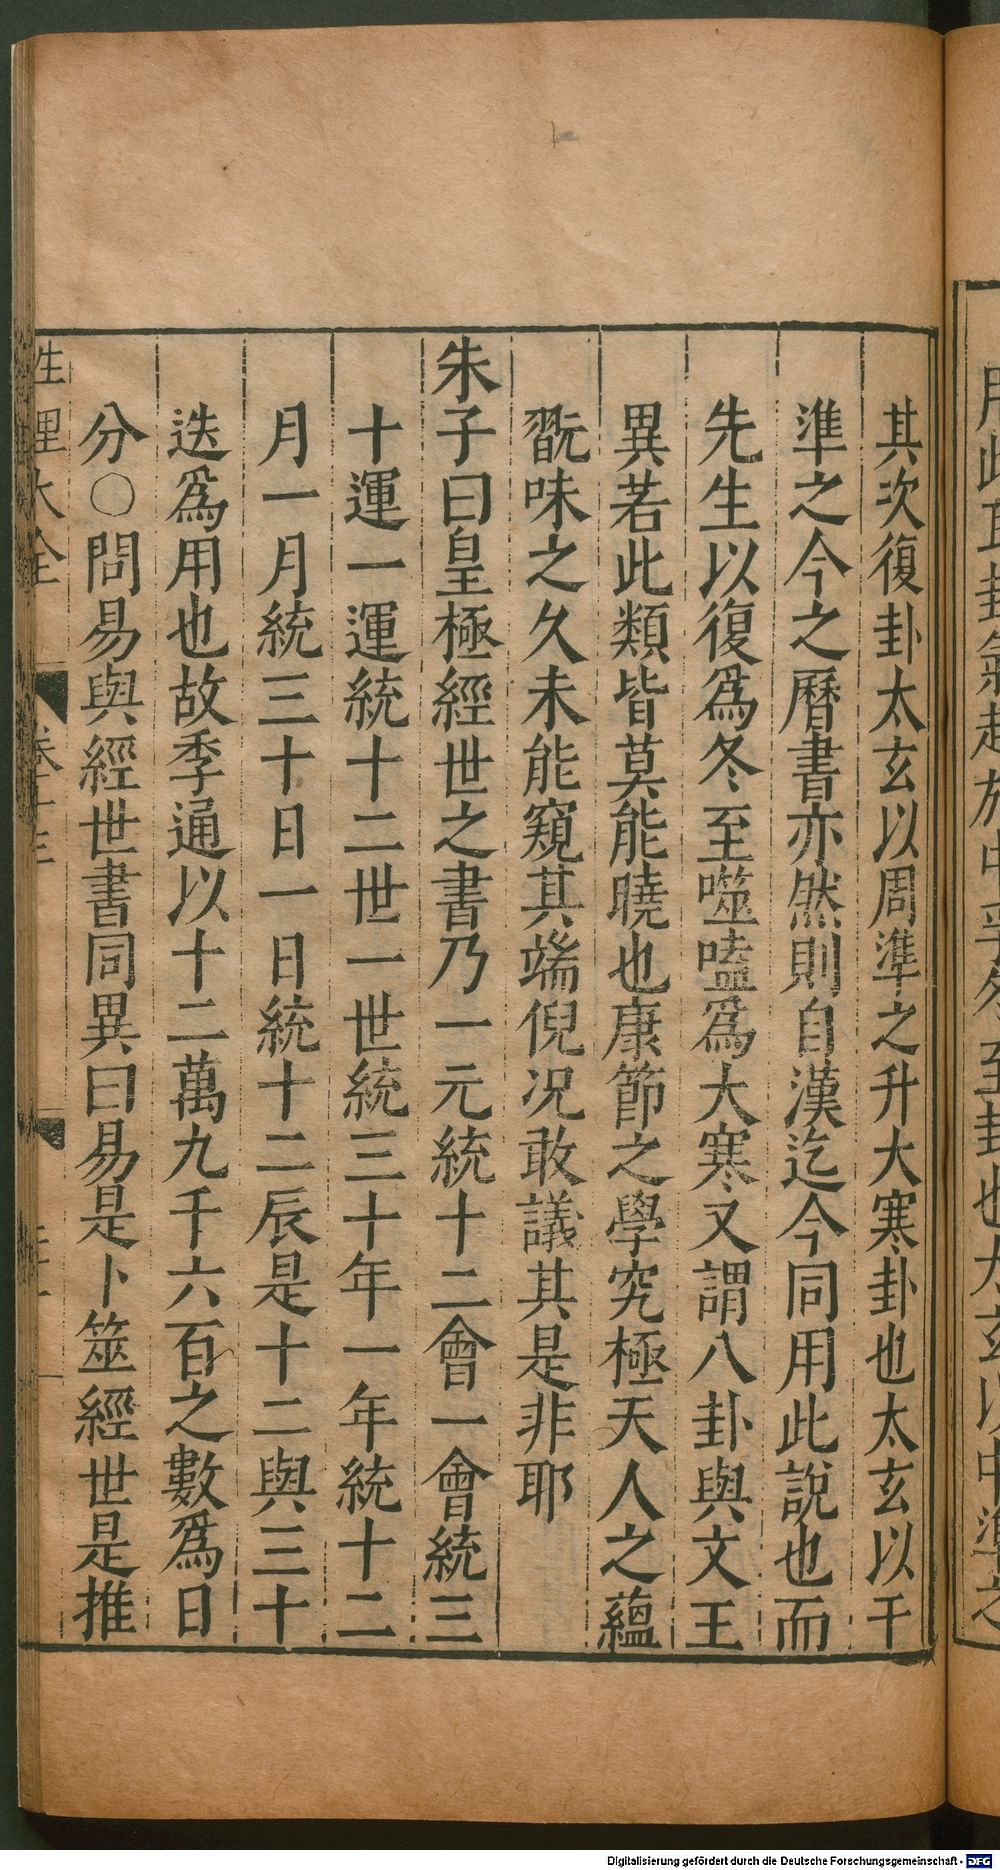 其次復卦太玄以周準之升大寒卦也太玄以干
準之今之曆書亦然則自漢迄今同用此說也而
先生以復爲冬至噬嗑爲大寒又謂八卦與文王
異若此類皆莫能曉也康節之學究極天人之蘊
翫味之久未能窺其端倪况敢議其是非耶
朱子曰皇極經世之書乃一元統十二會一會統三
十運一運統十二世一世統三十年一年統十二
月一月統三十日一日統十二辰是十二與三十
迭爲用也故季通以十二萬九千六百之數爲日
分○問易與經世書同異曰易是卜筮經世是推
性理大全
Digitalisierung gefördert durch die Deutsche Forschungsgemeinschaft - DFG